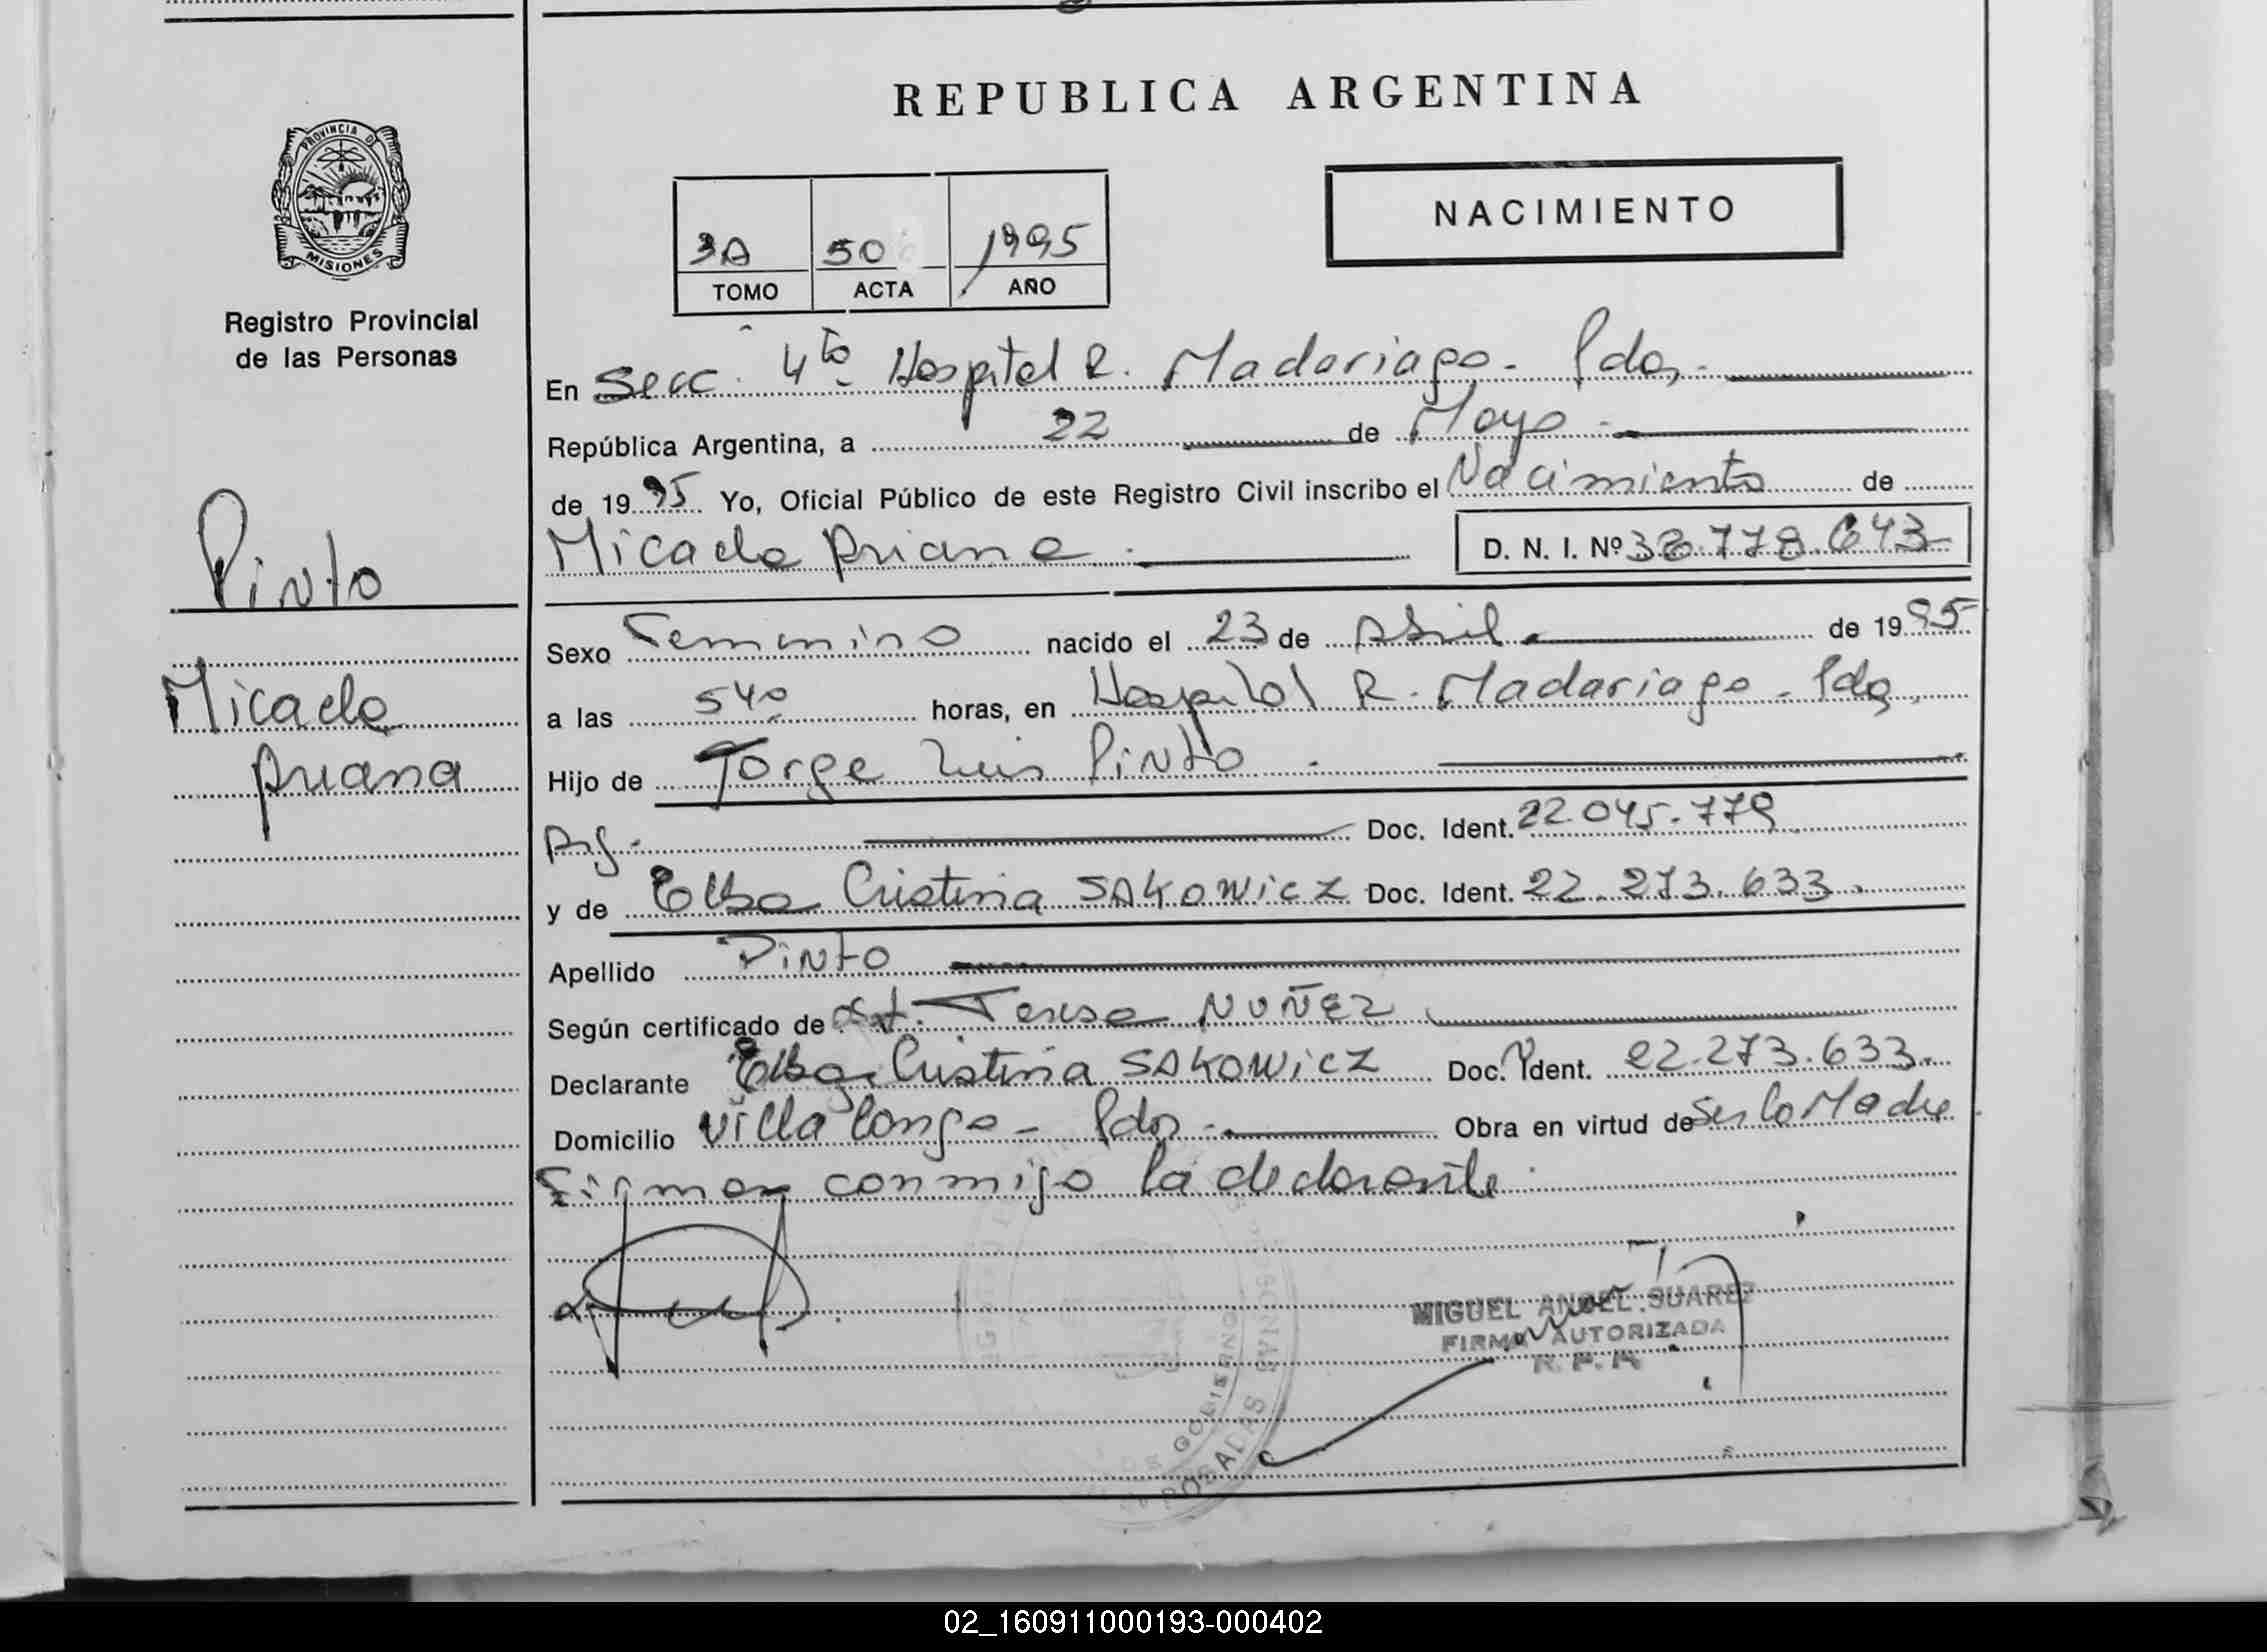 REPUBLICA ARGENTINA
PROVINCIA DE
MISIONES
Registro Provincial
de las Personas
3A 50 1995
TOMO ACTA AÑO
NACIMIENTO
En Secc. 4to Hospital R. Madariaga - Pdas.
República Argentina, a 22 de Mayo
de 1995 Yo, Oficial Público de este Registro Civil inscribo el Nacimiento de
Micaela Ariana D. N. I. Nº 38.778.643
Pinto
Micaela
Ariana
Sexo Femenino nacido el 23 de Abril de 1995
a las 540 horas, en Hospital R. Madariaga - Pdas.
Hijo de Jorge Luis Pinto
Arg. Doc. Ident. 22.045.779
y de Elba Cristina SAKOWICZ Doc. Ident. 22.273.633.
Apellido Pinto
Según certificado de Teresa NUÑEZ
Declarante Elba Cristina SAKOWICZ Doc. Ident. 22.273.633.
Domicilio Villa Longa - Pdas. Obra en virtud de Ser la Madre
Firman conmigo la declarante.
MIGUEL ANGEL SUAREZ
FIRMA AUTORIZADA
R. P. P.
GOBIERNO
POSADAS
02_160911000193-000402